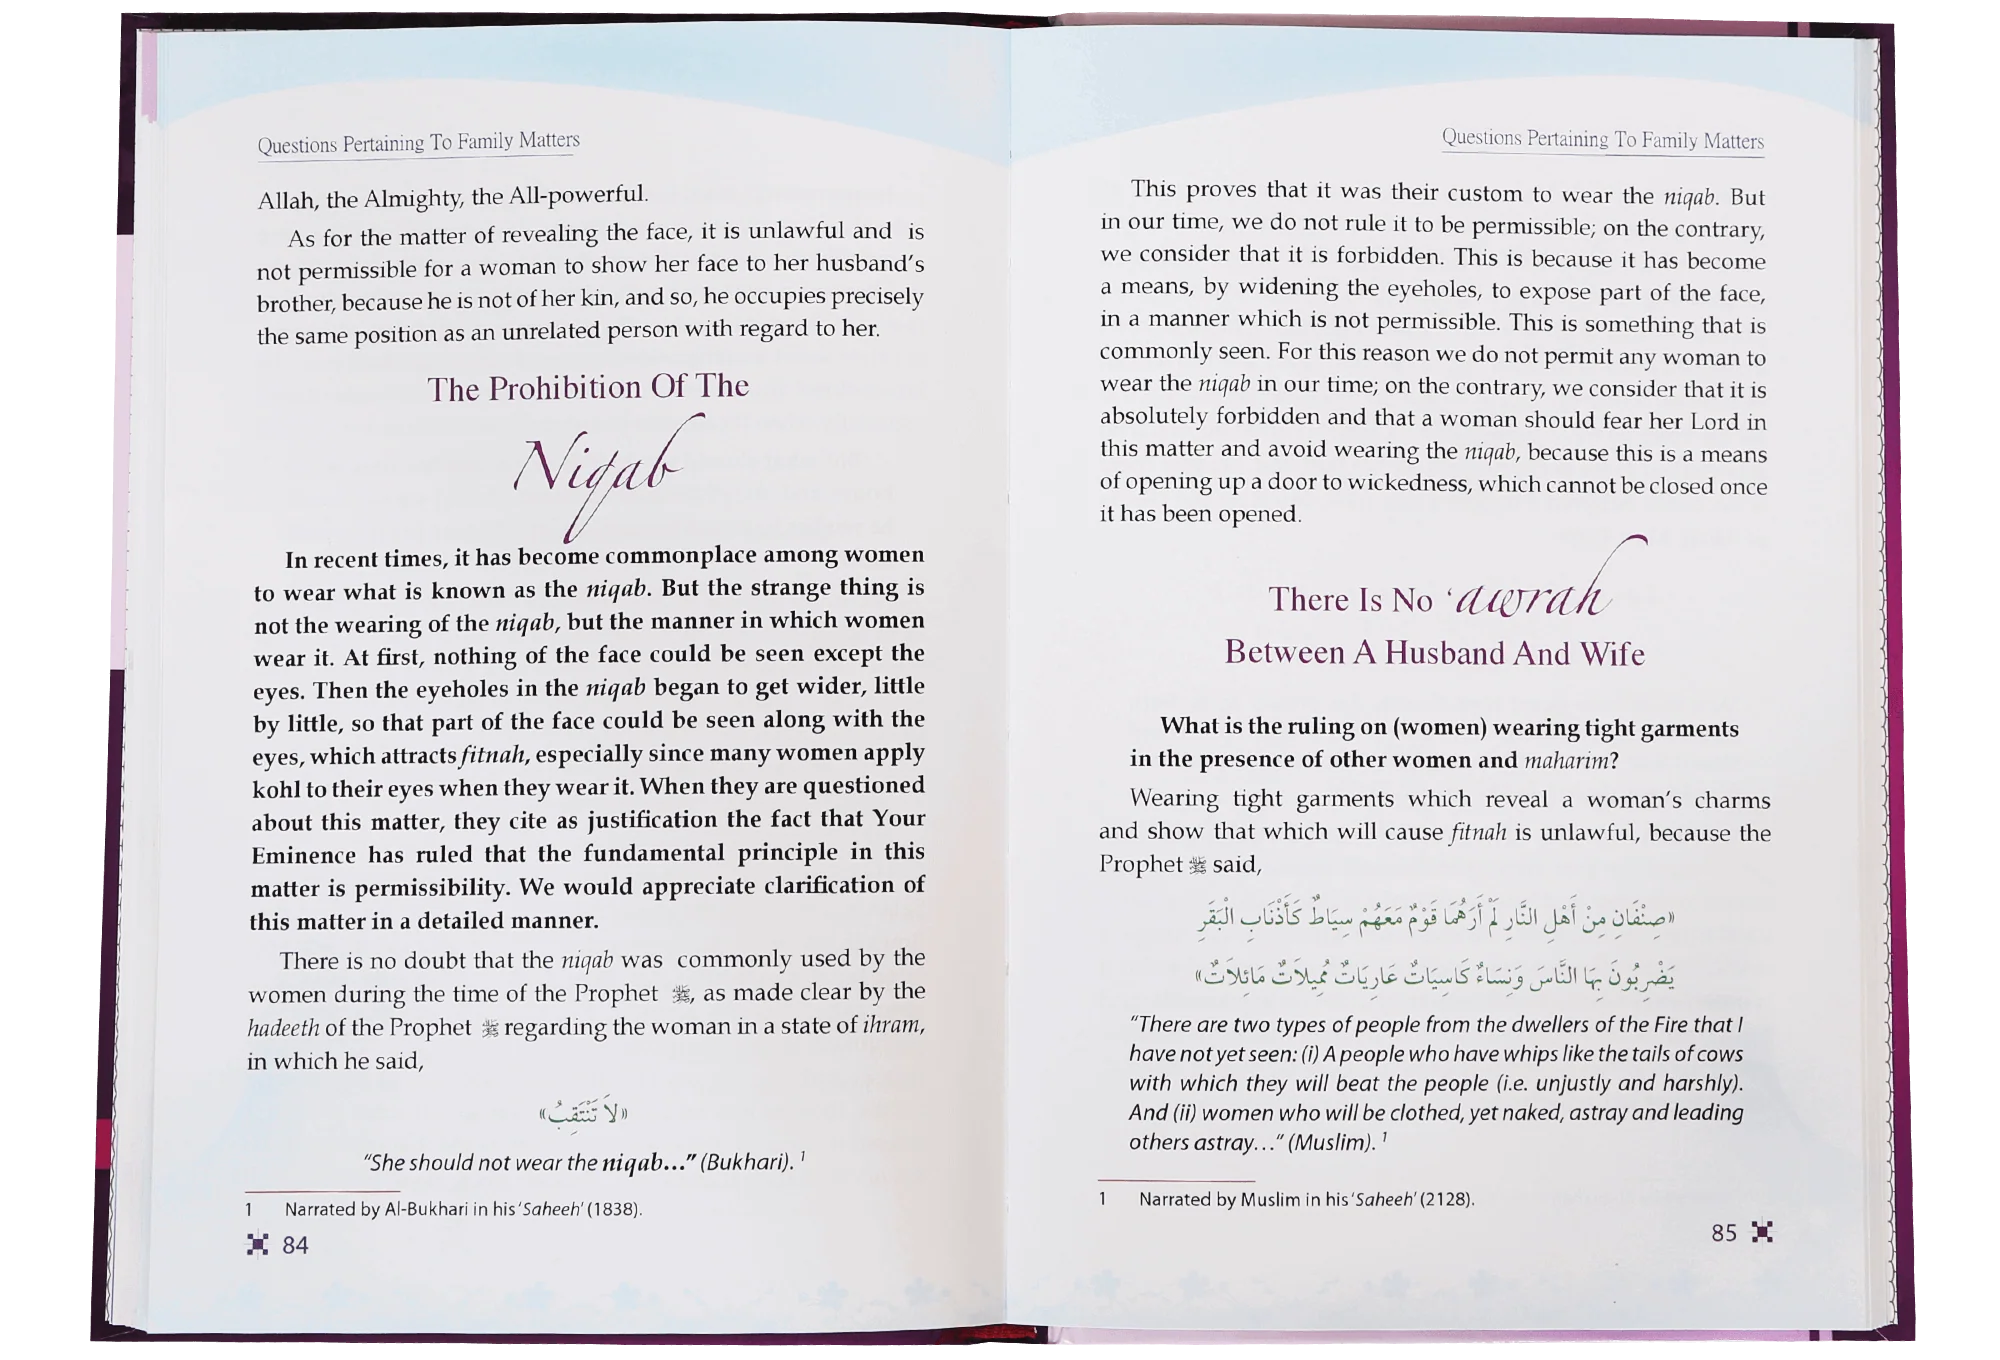 Questions Pertaining To Family Matters
Allah, the Almighty, the All-powerful.
As for the matter of revealing the face, it is unlawful and is
not permissible for a woman to show her face to her husband's
brother, because he is not of her kin, and so, he occupies precisely
the same position as an unrelated person with regard to her.
The Prohibition Of The
Niqab
In recent times, it has become commonplace among women
to wear what is known as the niqab. But the strange thing is
not the wearing of the niqab, but the manner in which women
wear it. At first, nothing of the face could be seen except the
eyes. Then the eyeholes in the niqab began to get wider, little
by little, so that part of the face could be seen along with the
eyes, which attracts fitnah, especially since many women apply
kohl to their eyes when they wear it. When they are questioned
about this matter, they cite as justification the fact that Your
Eminence has ruled that the fundamental principle in this
matter is permissibility. We would appreciate clarification of
this matter in a detailed manner.
There is no doubt that the niqab was commonly used by the
women during the time of the Prophet ﷺ, as made clear by the
hadeeth of the Prophet ﷺ regarding the woman in a state of ihram,
in which he said,
«لاَ تَنْتَقِبُ»
"She should not wear the niqab..." (Bukhari). 1
1 Narrated by Al-Bukhari in his 'Saheeh' (1838).
84
Questions Pertaining To Family Matters
This proves that it was their custom to wear the niqab. But
in our time, we do not rule it to be permissible; on the contrary,
we consider that it is forbidden. This is because it has become
a means, by widening the eyeholes, to expose part of the face,
in a manner which is not permissible. This is something that is
commonly seen. For this reason we do not permit any woman to
wear the niqab in our time; on the contrary, we consider that it is
absolutely forbidden and that a woman should fear her Lord in
this matter and avoid wearing the niqab, because this is a means
of opening up a door to wickedness, which cannot be closed once
it has been opened.
There Is No 'awrah
Between A Husband And Wife
What is the ruling on (women) wearing tight garments
in the presence of other women and maharim?
Wearing tight garments which reveal a woman's charms
and show that which will cause fitnah is unlawful, because the
Prophet ﷺ said,
«صِنْفَانِ مِنْ أَهْلِ النَّارِ لَمْ أَرَهُمَا قَوْمٌ مَعَهُمْ سِيَاطٌ كَأَذْنَابِ الْبَقَرِ
يَضْرِبُونَ بِهَا النَّاسَ وَنِسَاءٌ كَاسِيَاتٌ عَارِيَاتٌ مُمِيلاَتٌ مَائِلاَتٌ»
"There are two types of people from the dwellers of the Fire that I
have not yet seen: (i) A people who have whips like the tails of cows
with which they will beat the people (i.e. unjustly and harshly).
And (ii) women who will be clothed, yet naked, astray and leading
others astray..." (Muslim). 1
1 Narrated by Muslim in his 'Saheeh' (2128).
85